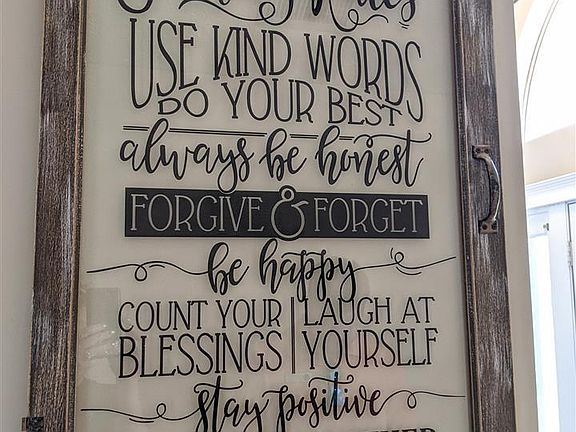 Rules
USE KIND WORDS
DO YOUR BEST
always be honest
FORGIVE & FORGET
be happy
COUNT YOUR | LAUGH AT
BLESSINGS | YOURSELF
stay positive